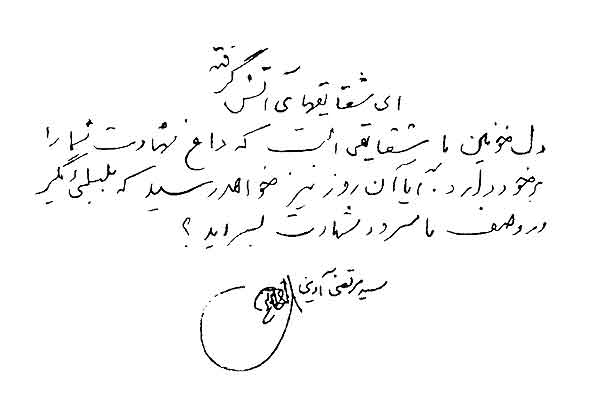 ای شقایقهای آتش گرفته
دل خونین ما شقایقی است که داغ شهادت شما را
بر خود دارد. آیا آن روز نیز خواهد رسید که بلبلی دیگر
در وصف ما سرود شهادت بسراید؟
سید مرتضی آوینی